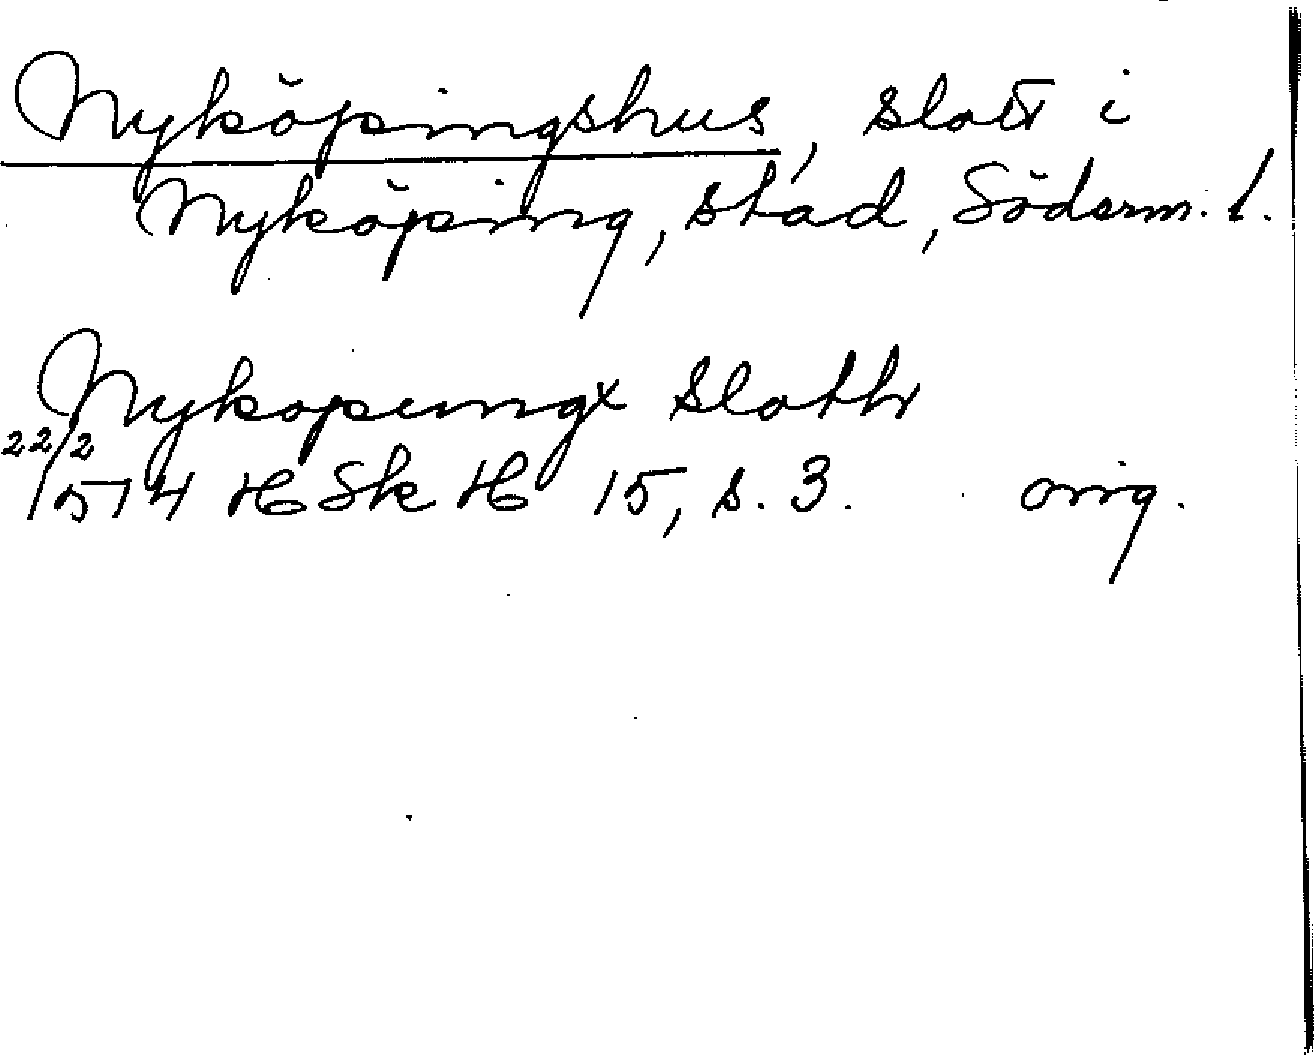 Nyköpingshus, slott i
Nyköping, stad, Söderm. l.
Nykopungx Slothr
22/2 1574 HSk H 15, s. 3. orig.